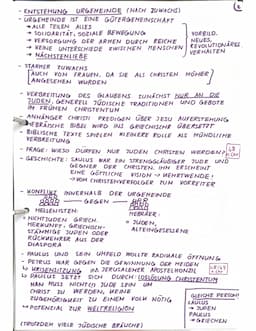 - ENTSTEHUNG URGEMEINDE (NACH ZUWACHS)
- URGEMEINDE IST EINE GÜTERGEMEINSCHAFT
• ALLE TEILEN ALLES
• SOLIDARITÄT, SOZIALE BEWEGUNG
• VERSORGUNG DER ARMEN DURCH REICHE
• KEINE UNTERSCHIEDE ZWISCHEN MENSCHEN
• NÄCHSTENLIEBE
VORBILD.
NEUES,
REVOLUTIONÄRES
VERHALTEN
- STARKER ZUWACHS
AUCH VON FRAUEN, DA SIE ALS CHRISTEN HÖHER
ANGESEHEN WURDEN
- VERBREITUNG DES GLAUBENS ZUNÄCHST NUR AN DIE
JUDEN, GENERELL JÜDISCHE TRADITIONEN UND GEBOTE
IM FRÜHEN CHRISTENTUM
- ANHÄNGER CHRISTI PREDIGEN ÜBER JESU AUFERSTEHUNG
- HEBRÄISCHE BIBEL WIRD INS GRIECHISCHE ÜBERSETZT
- BIBLISCHE TEXTE SPIELEN KLEINERE ROLLE ALS MÜNDLICHE
VERBREITUNG
- FRAGE: WIESO DÜRFEN NUR JUDEN CHRISTEN WERDEN?
- GESCHICHTE: SAULUS WAR EIN STRENGGLÄUBIGER JUDE UND
GEGNER DER CHRISTEN. IHM ERSCHEINT
EINE GÖTTLICHE VISION → MEHRTWENDE,
→ VOM CHRISTENVERFOLGER ZUM VORREITER
- KONFLIKT INNERHALB DER URGEMEINDE
— GEGEN —
HELLENISTEN:
HEBRÄER:
• NICHTJUDEN GRIECH.
HERKUNFT, GRIECHISCH-
STÄMMIGE JUDEN ODER
RÜCKKEHRER AUS DER
DIASPORA
• JUDEN,
ALTEINGESESSENE
- PAULUS UND SEIN UMFELD WOLLTE RADIKALE ÖFFNUNG
- PETRUS WAR GEGEN DIE GEWINNUNG DER HEIDEN
↳ KRISENSITZUNG AM JERUSALEMER APOSTELKONZIL
↳ PAULUS SETZT SICH DURCH (LOSLÖSUNG CHRISTENTUM
MAN MUSS NICHT JUDE SEIN UM
CHRIST ZU WERDEN, KEINE
ZUGEHÖRIGKEIT ZU EINEM VOLK NÖTIG
↳ POTENTIAL ZUR WELTRELIGION
(TROTZDEM VIELE JÜDISCHE BRÄUCHE)
GLEICHE PERSON!
SAULUS
→ JUDEN
PAULUS
→ GRIECHISCH